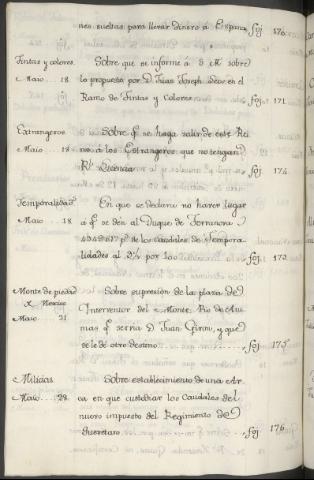 nes sueltas para llevar dinero á España, foj 170
Tintas y colores. Sobre que se informe á S. M. sobre
Maio. 18 la propuesta por D. Juan Joseph en el
Ramo de Tintas y Colores foj. 171
Extrangeros Sobre q. se haga salir de este Rei
Maio. 18 no a los Extrangeros que no tengan
Rl. Licencia foj 172
Temporalidad.s En que se declara no haver lugar
Maio. 18 a q. se den al Duque de Terranova
p.s de los caudales de Tempora
lidades al por foj. 173
Monte de piedad Sobre supresion de la plaza de
Mexico Interventor del Monte Pio de Ani
Maio. 21 mas q. servia D. Juan y que
se le dé otro destino foj 175
Milicias Sobre establecimiento de una Ar
Maio. 28 ca en que custodiar los Caudales del
nuevo impuesto del Regimiento de
Queretaro foj 176